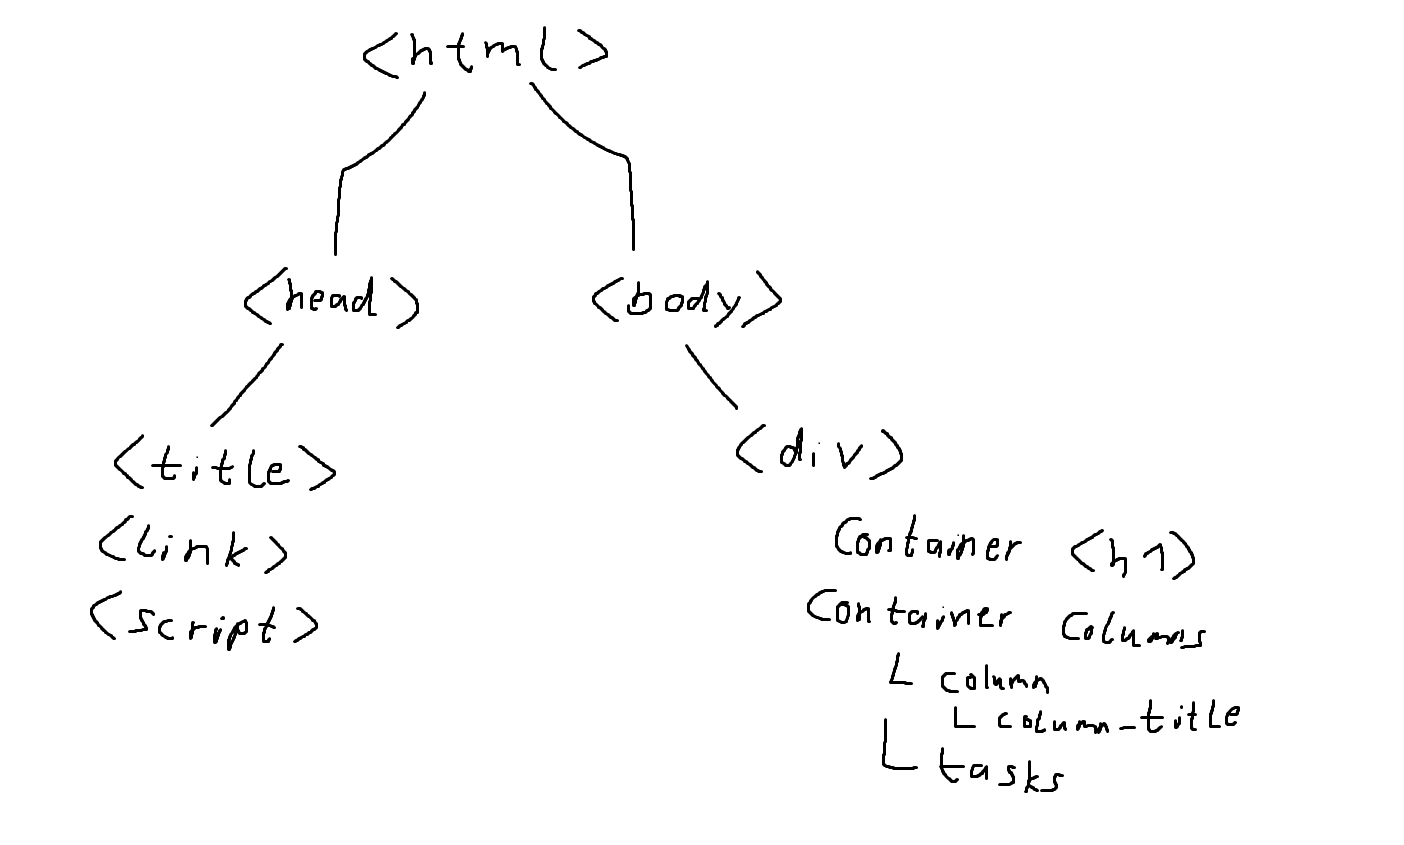 <html>
<head> <body>
<title> <div>
<link>
<script>
Container <h1>
Container Columns
column
column-title
tasks